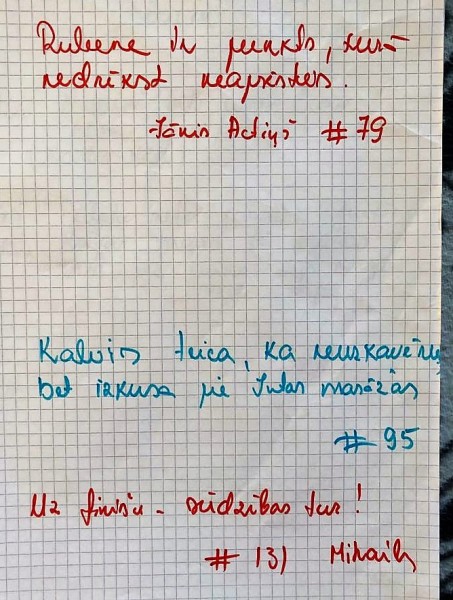 Rubene ir punkts, kurā
nedrīkst neapstāties.
Jānis Actiņš #79
Kalvis teica, ka neuzkavēšu
bet izkusa pie Intas masāžās
#95
Uz finišu - sūdzības tur!
#131 Mihails